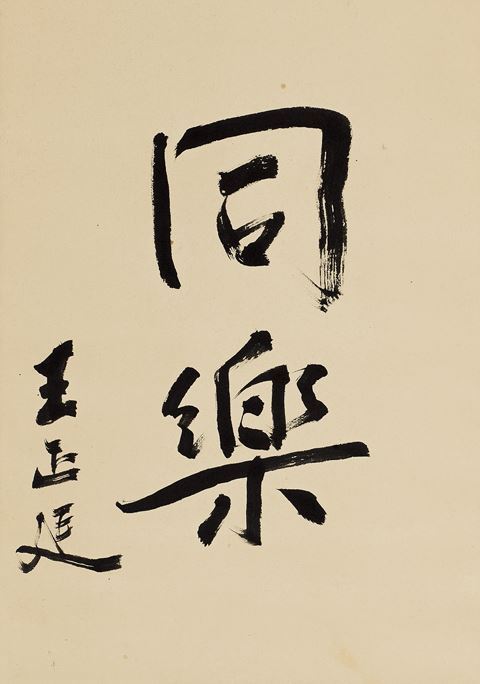 同樂
王正廷